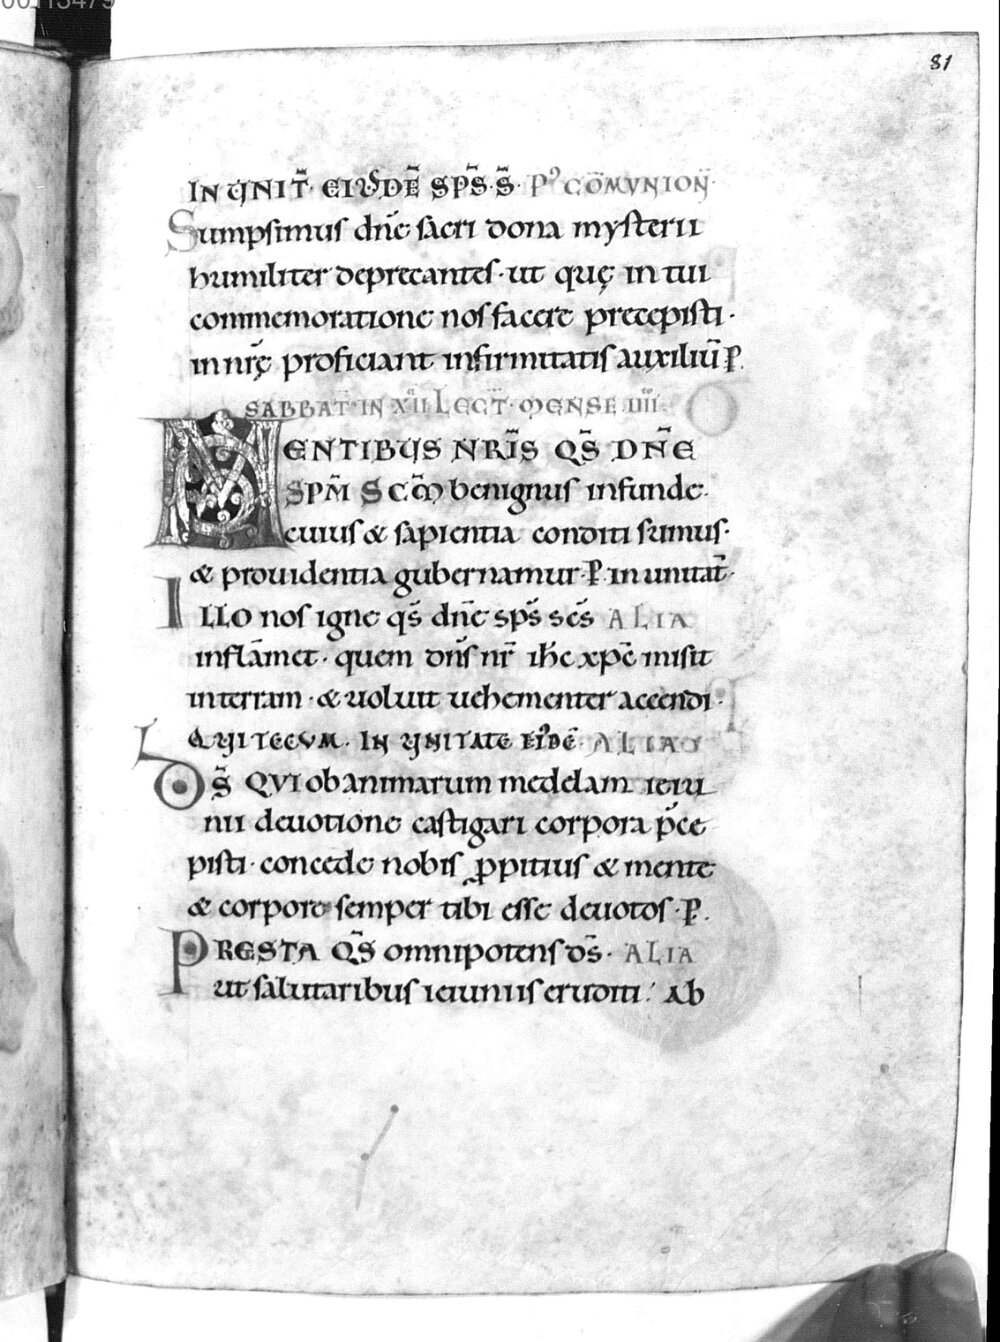 81
IN UNIT̄· EIUSDĒ SPS̄· S̄· P' COMUNION̄·
Sumpsimus dnē sacri dona mysterii
humiliter deprecantes· ut quę in tui
commemoratione nos facere precepisti·
in nrę̄ proficiant infirmitatis auxiliū P.
SABBAT̄ IN XII LECT̄· MENSE· IIII·
MENTIBUS NRĪS QS̄ DN̄E
SPM̄ SCM̄ benignus infunde·
cuius & sapientia conditi sumus·
& prouidentia gubernamur· P· in unitat̄·
ILLO nos igne qs̄ dnē sps̄ scs̄ ALIA
inflāmet· quem dn̄s nr̄ ihc̄ xpc̄ misit
in terram· & uoluit uehementer accendi·
QUI TECUM· IN UNITATE EIUSDĒ· ALIA
DS̄ QUI ob animarum medelam ieiu
nii deuotione castigari corpora p̄ce
pisti· concede nobis ꝓpitius & mente
& corpore semper tibi esse deuotos· P.
PRESTA QS̄ omnipotens ds̄· ALIA
ut salutaribus ieiuniis eruditi· Ab